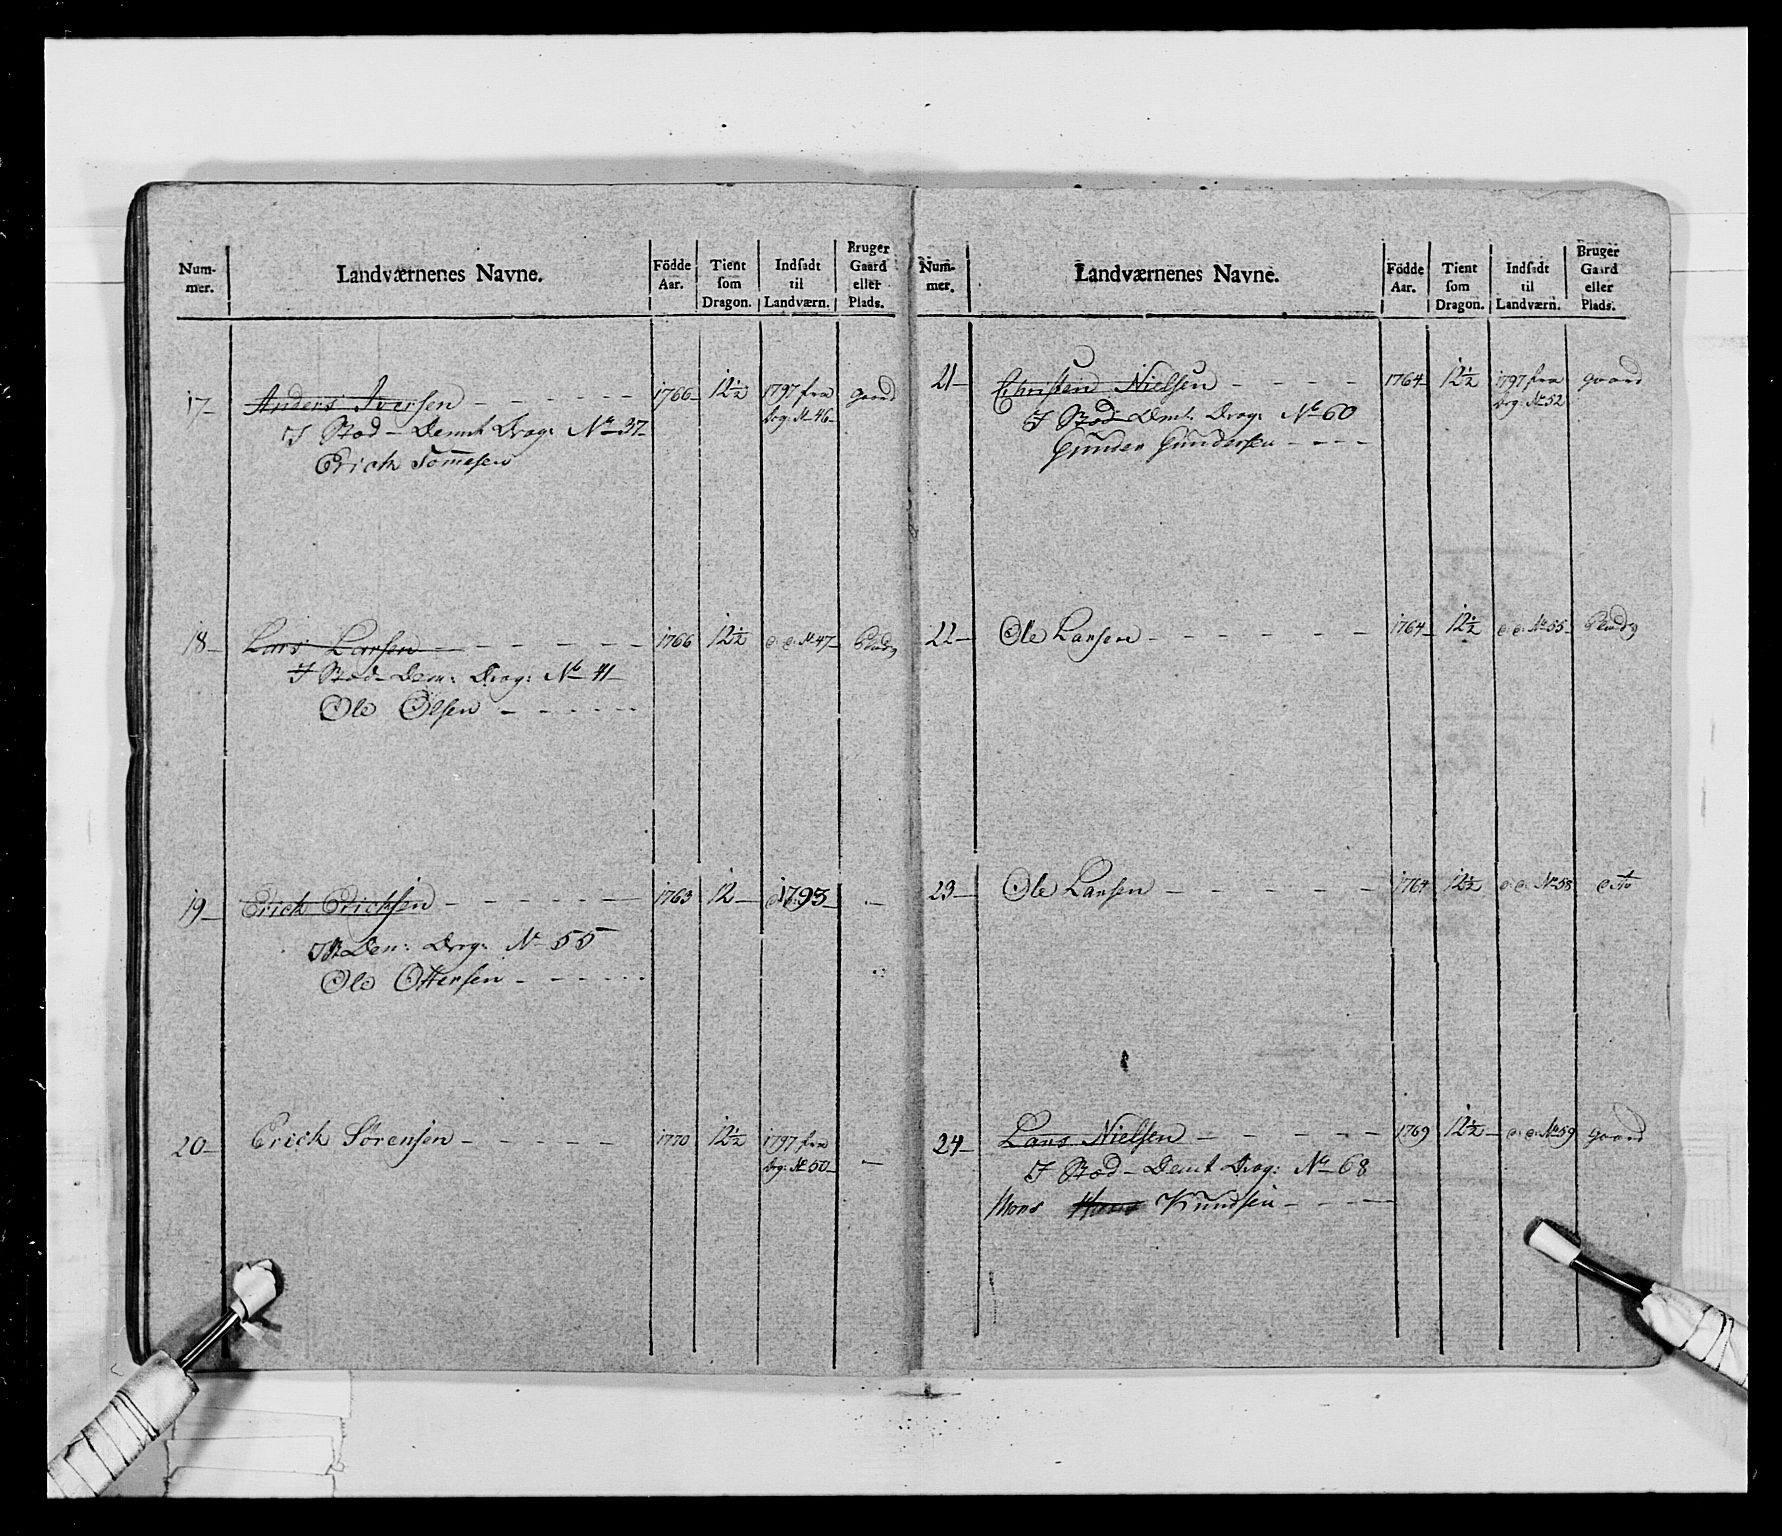 Num-
mer.
Landværnenes Navne.
Födde
Aar.
Tient
som
Dragon.
Indsadt
til
Landværn.
Bruger
Gaard
eller
Plads.
17- Anders Iversen - - - - - - 1766- 12½ 1797 fra gaard
Drg: No 46-
I Stæd - Demt Drag: No 37-
Erich Tomesen
18- Lars Larsen - - - - - - 1766 12½ No 47-
I Stæd - Dem: Drag: No 41-
Ole Olsen - - - - -
19- Erich Erichsen - - - - - - 1763 12- 1793- -
Dem: Drag: No 55
Ole Ottersen - - - - -
20- Erich Sörensen - - - - - 1770 12½ 1797 fra
Drg: No 50- -
Num-
mer.
Landværnenes Navne.
Födde
Aar.
Tient
som
Dragon.
Indsadt
til
Landværn.
Bruger
Gaard
eller
Plads.
21- Christen Nielsen - - - - 1764- 12½ 1797 fra gaard
Drg: No 52
I Stæd Demt Drag: No 60
Gunder Gundersen - - - -
22- Ole Larsen - - - - - - 1764- 12½ No 55-
23- Ole Larsen - - - - - - 1764 12½ No 58 dto
24- Lars Nielsen - - - - - 1769 12½- No 59 gaard
I Stæd - Demt Drag: No 68
Mons Hans Knudsen - - - -